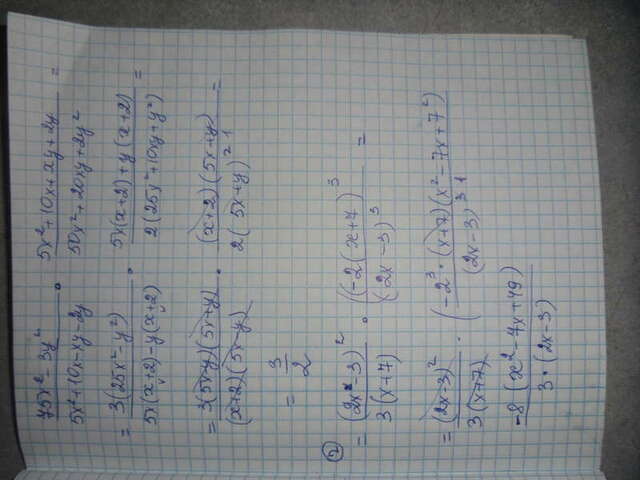 75x² - 3y² / 5x² + 10x - xy - 2y · 5x² + 10x + xy + 2y / 50x² + 20xy + 2y² =
= 3(25x² - y²) / 5x(x+2) - y(x+2) · 5x(x+2) + y(x+2) / 2(25x² + 10xy + y²) =
= 3(5x-y)(5x+y) / (x+2)(5x-y) · (x+2)(5x+y) / 2(5x+y)² ¹ =
= 3 / 2
② = (2x-3)² / 3(x+7) · (-2(x+7)³ / (2x-3)³ =
= (2x-3)² / 3(x+7) · (-2³ · (x+7)(x² - 7x + 7²) / (2x-3)³ ¹
-8(x² - 7x + 49) / 3 · (2x-3)